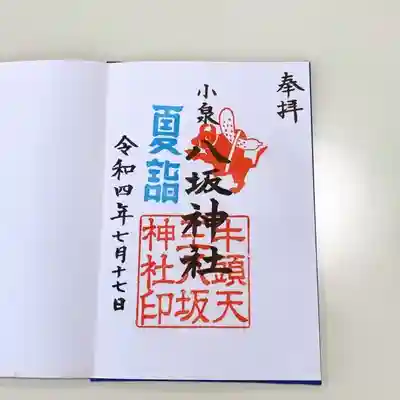 奉拝
小泉
八坂神社
牛頭天
王八坂
神社印
夏詣
令和四年七月十七日